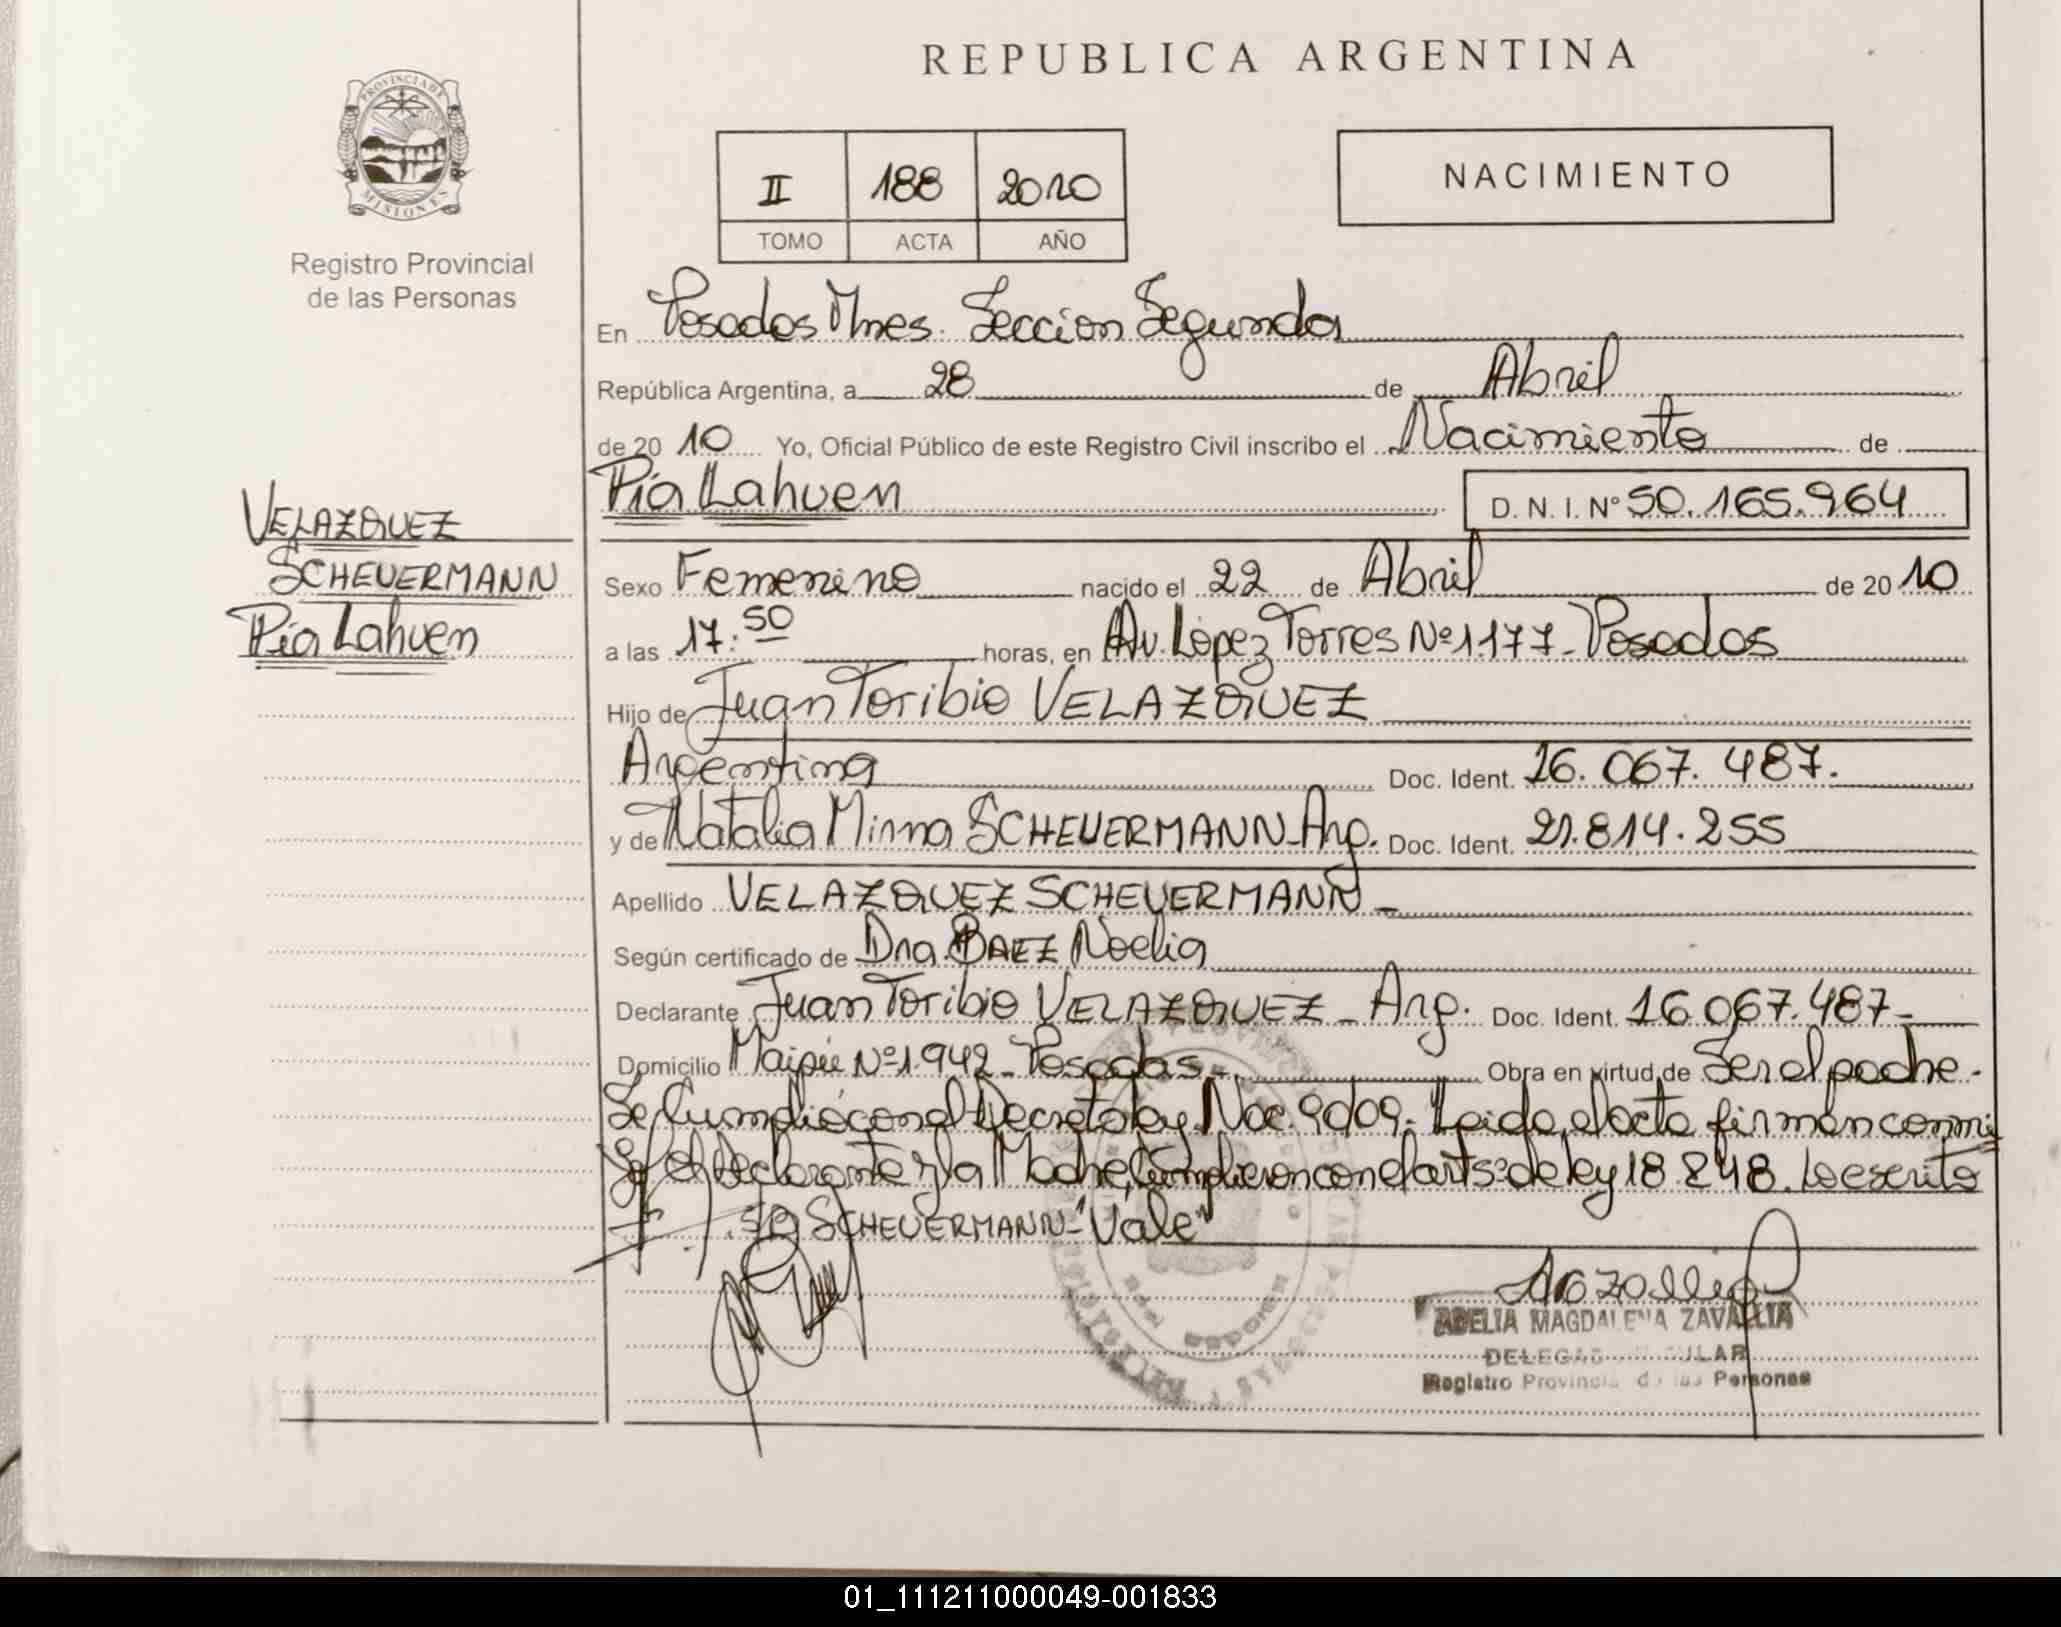 REPUBLICA ARGENTINA
PROVINCIA DE
MISIONES
Registro Provincial
de las Personas
II 188 2010
TOMO ACTA AÑO
NACIMIENTO
En Posadas Mnes. Sección Segunda
República Argentina, a 28 de Abril
de 20 10 Yo, Oficial Público de este Registro Civil inscribo el Nacimiento de
Pía Lahuen D. N. I. Nº 50.165.964
VELAZQUEZ
SCHEUERMANN
Pía Lahuen
Sexo Femenino nacido el 22 de Abril de 20 10
a las 17:50 horas, en Av. López Torres Nº 1.177 - Posadas
Hijo de Juan Toribio VELAZQUEZ
Argentina Doc. Ident. 16.067.487.
y de Natalia Minna SCHEUERMANN - Arg. Doc. Ident. 21.814.255
Apellido VELAZQUEZ SCHEUERMANN -
Según certificado de Dra. BAEZ Noelia
Declarante Juan Toribio VELAZQUEZ - Arg. Doc. Ident. 16.067.487 -
Domicilio Maipú Nº 1.942 - Posadas - Obra en virtud de Ser el padre -
Se Cumplió con el Decreto ley Nac. 9009 - Leida el acta firman conmi
go el Declarante y la Madre, Cumplieron con el art 5º de ley 18.248. Lo escrito
SCHEUERMANN - "Vale"
ADELIA MAGDALENA ZAVALLIA
Registro Provincial de las Personas
01_111211000049-001833